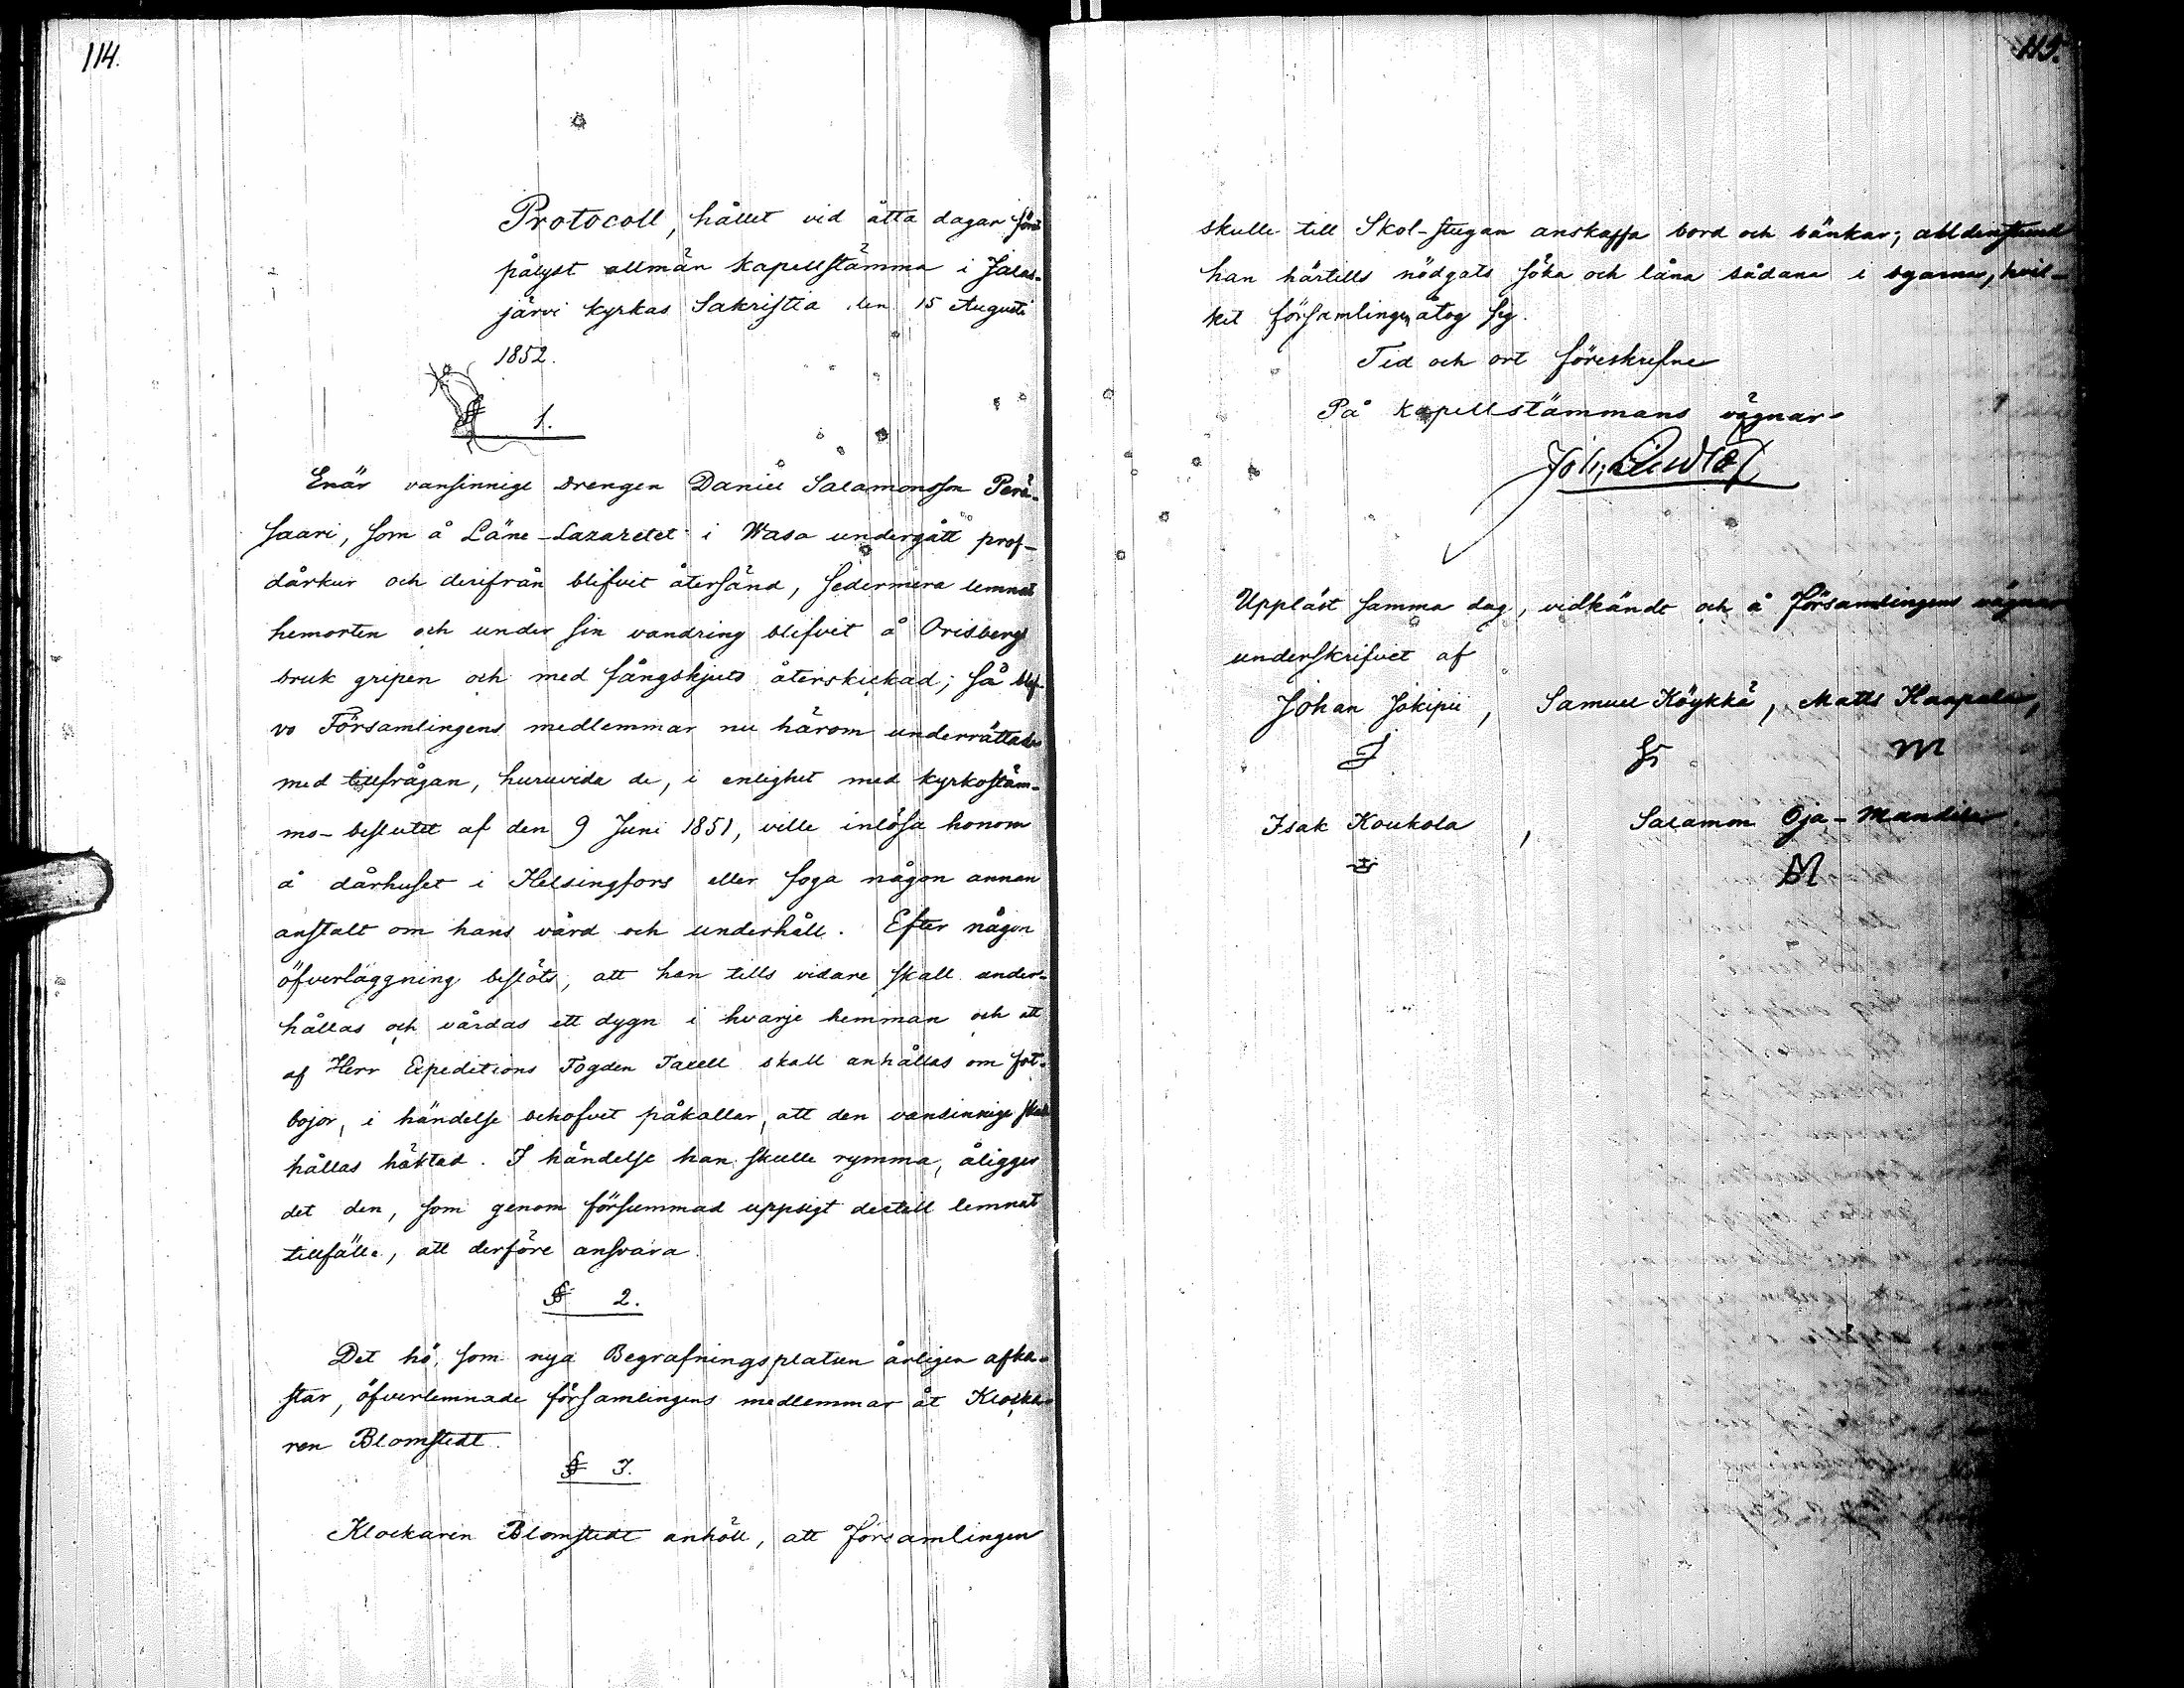 114.
Protocoll, hållet vid åtta dagar förut
pålyst allmän Kapellstämma i Jalas-
järvi Kyrkas Sakristia den 15 Augusti
1852.
§ 1.
Enär vansinnige Drengen Daniel Salamonsson Perä-
saari, som å Läne-Lazaretet i Wasa undergått prof-
dårkur och derifrån blifvit återsänd, sedermera lemnat
hemorten och under sin vandring blifvit å Orisberg
bruk gripen och med fångskjuts återskickad; så blef-
vo Församlingens medlemmar nu härom underrättade
med tillfrågan, huruvida de, i enlighet med kyrkostäm-
mo-beslutet af den 9 Juni 1851, ville inlösa honom
å dårhuset i Helsingfors eller foga någon annan
anstalt om hans vård och underhåll. Efter någon
öfverläggning beslöts, att han tills vidare skall under-
hållas och vårdas ett dygn i hvarje hemman och att
af Herr Expeditions Fogden Taxell skall anhållas om fot-
bojor, i händelse behofvet påkallar, att den vansinnige skall
hållas häktad. I händelse han skulle rymma, åligger
det den, som genom försummad uppsigt dertill lemnat
tillfälle, att derföre ansvara.
§ 2.
Det hö, som nya Begrafningsplatsen årligen afka-
star, öfverlemnade församlingens medlemmar åt Klocka-
ren Blomstedt.
§ 3.
Klockaren Blomstedt anhöll, att Församlingen
115.
skulle till Skol-stugan anskaffa bord och bänkar; alldenstund
han härtills nödgats söka och låna sådana i byarna, hvil-
ket församlingen åtog sig.
Tid och ort föreskrefne
På Kapellstämmans vägnar
Joh.
Uppläst samma dag, vidkändt och å Församlingens vägnar
underskrifvet af
Johan Jokipii, Samuel Köykkä, Matts Haapala,
J S M
Isak Koukola, Salamon Oja-Mandila
M